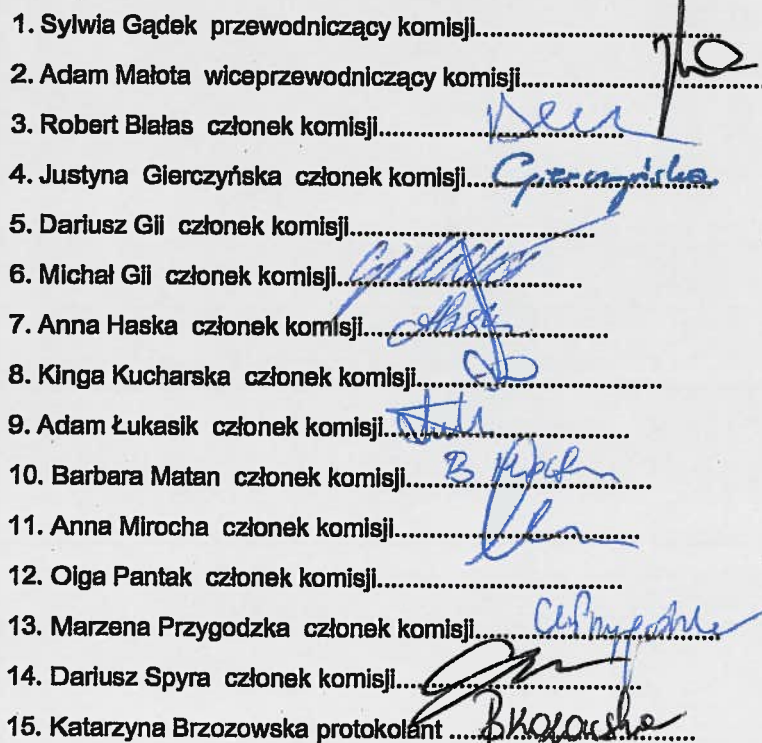 1. Sylwia Gądek przewodniczący komisji..............................
2. Adam Małota wiceprzewodniczący komisji..............................
3. Robert Błałas członek komisji..............................
4. Justyna Gierczyńska członek komisji.....Gierczyńska
5. Dariusz Gil członek komisji..............................
6. Michał Gil członek komisji..............................
7. Anna Haska członek komisji..............................
8. Kinga Kucharska członek komisji..............................
9. Adam Łukasik członek komisji..............................
10. Barbara Matan członek komisji..............................
11. Anna Mirocha członek komisji..............................
12. Olga Pantak członek komisji..............................
13. Marzena Przygodzka członek komisji..............................
14. Dariusz Spyra członek komisji..............................
15. Katarzyna Brzozowska protokolant ..............................